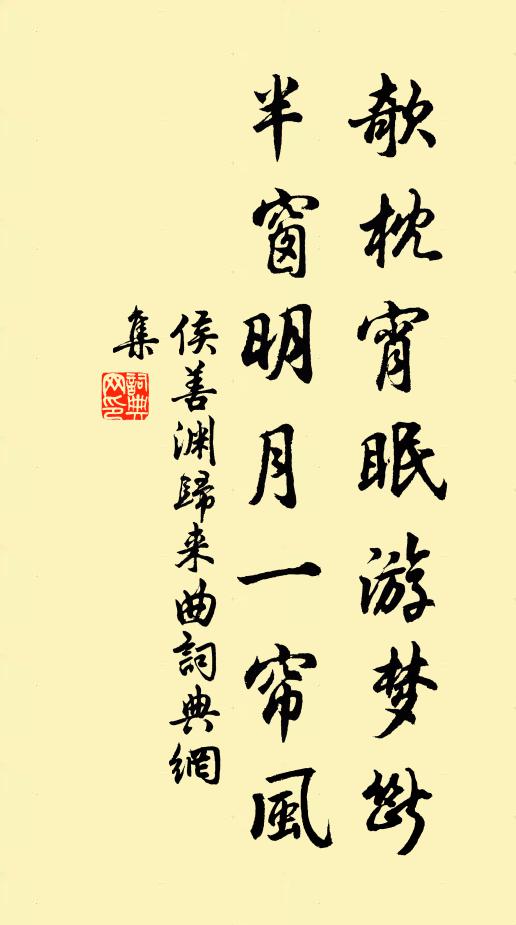 欹枕宵眠游梦断
半窗明月一帘风
侯善渊歸来曲詞典網
集
詞典
网印